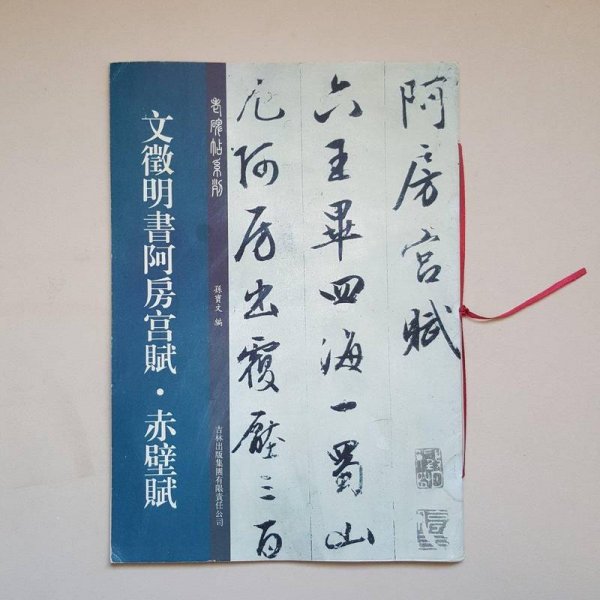 阿房宫賦
六王畢四海一蜀山
兀阿房出覆壓三百
老碑帖系列
孫寶文 編
吉林出版集團有限責任公司
文徵明書阿房宫賦·赤壁賦